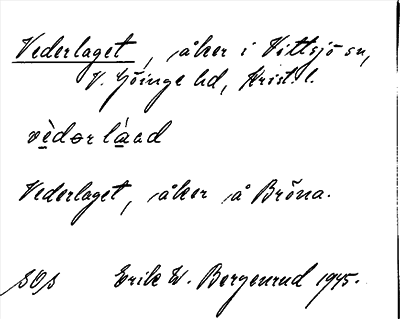 Vederlaget, åker i Vittsjö sn,
V. Göinge hd, Krist. l.
vèdərlàad
Vederlaget, åker å Bröna.
SOS Erik W. Bergenrud 1945.